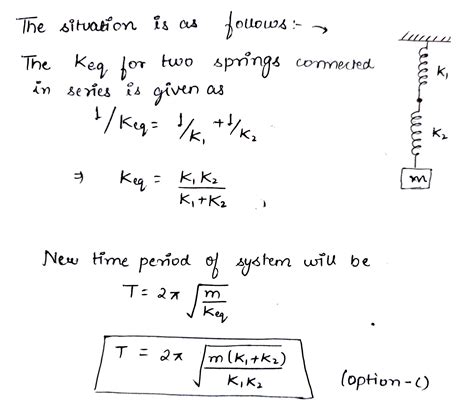 The situation is as follows:- →
The Keq for two springs connected
in series is given as
1/Keq = 1/K₁ + 1/K₂
⇒ Keq = K₁K₂ / K₁+K₂ ,
K₁
K₂
m
New time period of system will be
T = 2π √(m / Keq)
T = 2π √(m(K₁+K₂) / K₁K₂)
(option-C)